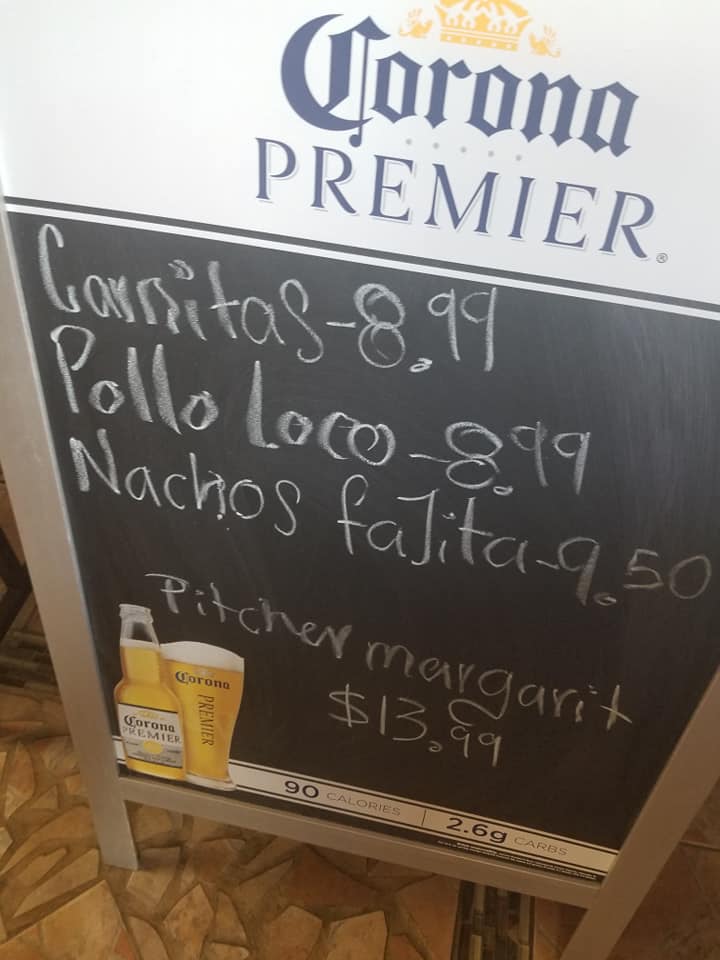 Corona
PREMIER®
Carnitas-8.99
Pollo Loco-8.99
Nachos faJita-9.50
Pitcher margarit
$13.99
Corona
PREMIER
Corona
PREMIER
90 CALORIES | 2.6g CARBS